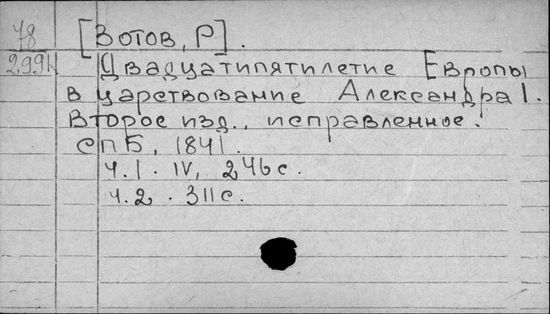 78
[Зотов, Р].
299N Двадцатипятилетие Европы
в царствование Александра I.
Второе изд., исправленное.
СПБ, 1841.
Ч.1. IV, 246 с.
Ч.2. 311 с.